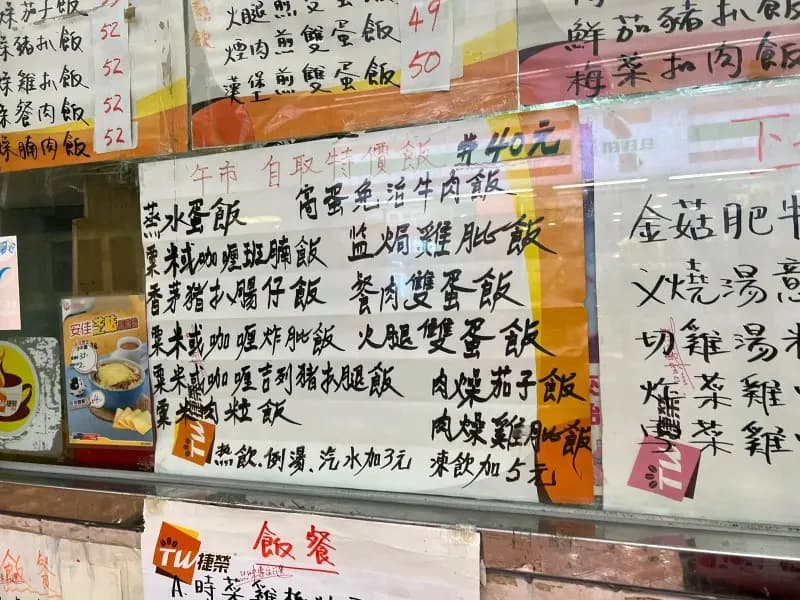 燥茄子飯
豬扒飯 52
雞扒飯 52
餐肉飯 52
腩肉飯 52
火腿煎雙蛋飯 49
煙肉煎雙蛋飯
漢堡煎雙蛋飯 50
鮮茄豬扒飯
梅菜扣肉飯
午市 自取特價飯 40元
蒸水蛋飯
窩蛋免治牛肉飯
粟米或咖喱班腩飯
監焗雞肶飯
香茅豬扒腸仔飯
餐肉雙蛋飯
粟米或咖喱炸肶飯
火腿雙蛋飯
粟米或咖喱吉列豬扒腿飯
肉燥茄子飯
粟米肉粒飯
肉燥雞肶飯
TW捷榮
熱飲.例湯、汽水加3元 凍飲加5元
ELEVEN
下
金菇肥牛
义燒湯意
切雞湯米
菜雞
菜雞
TW捷榮
安佳芝士
TW捷榮
飯餐
A.時菜雞
飯餐